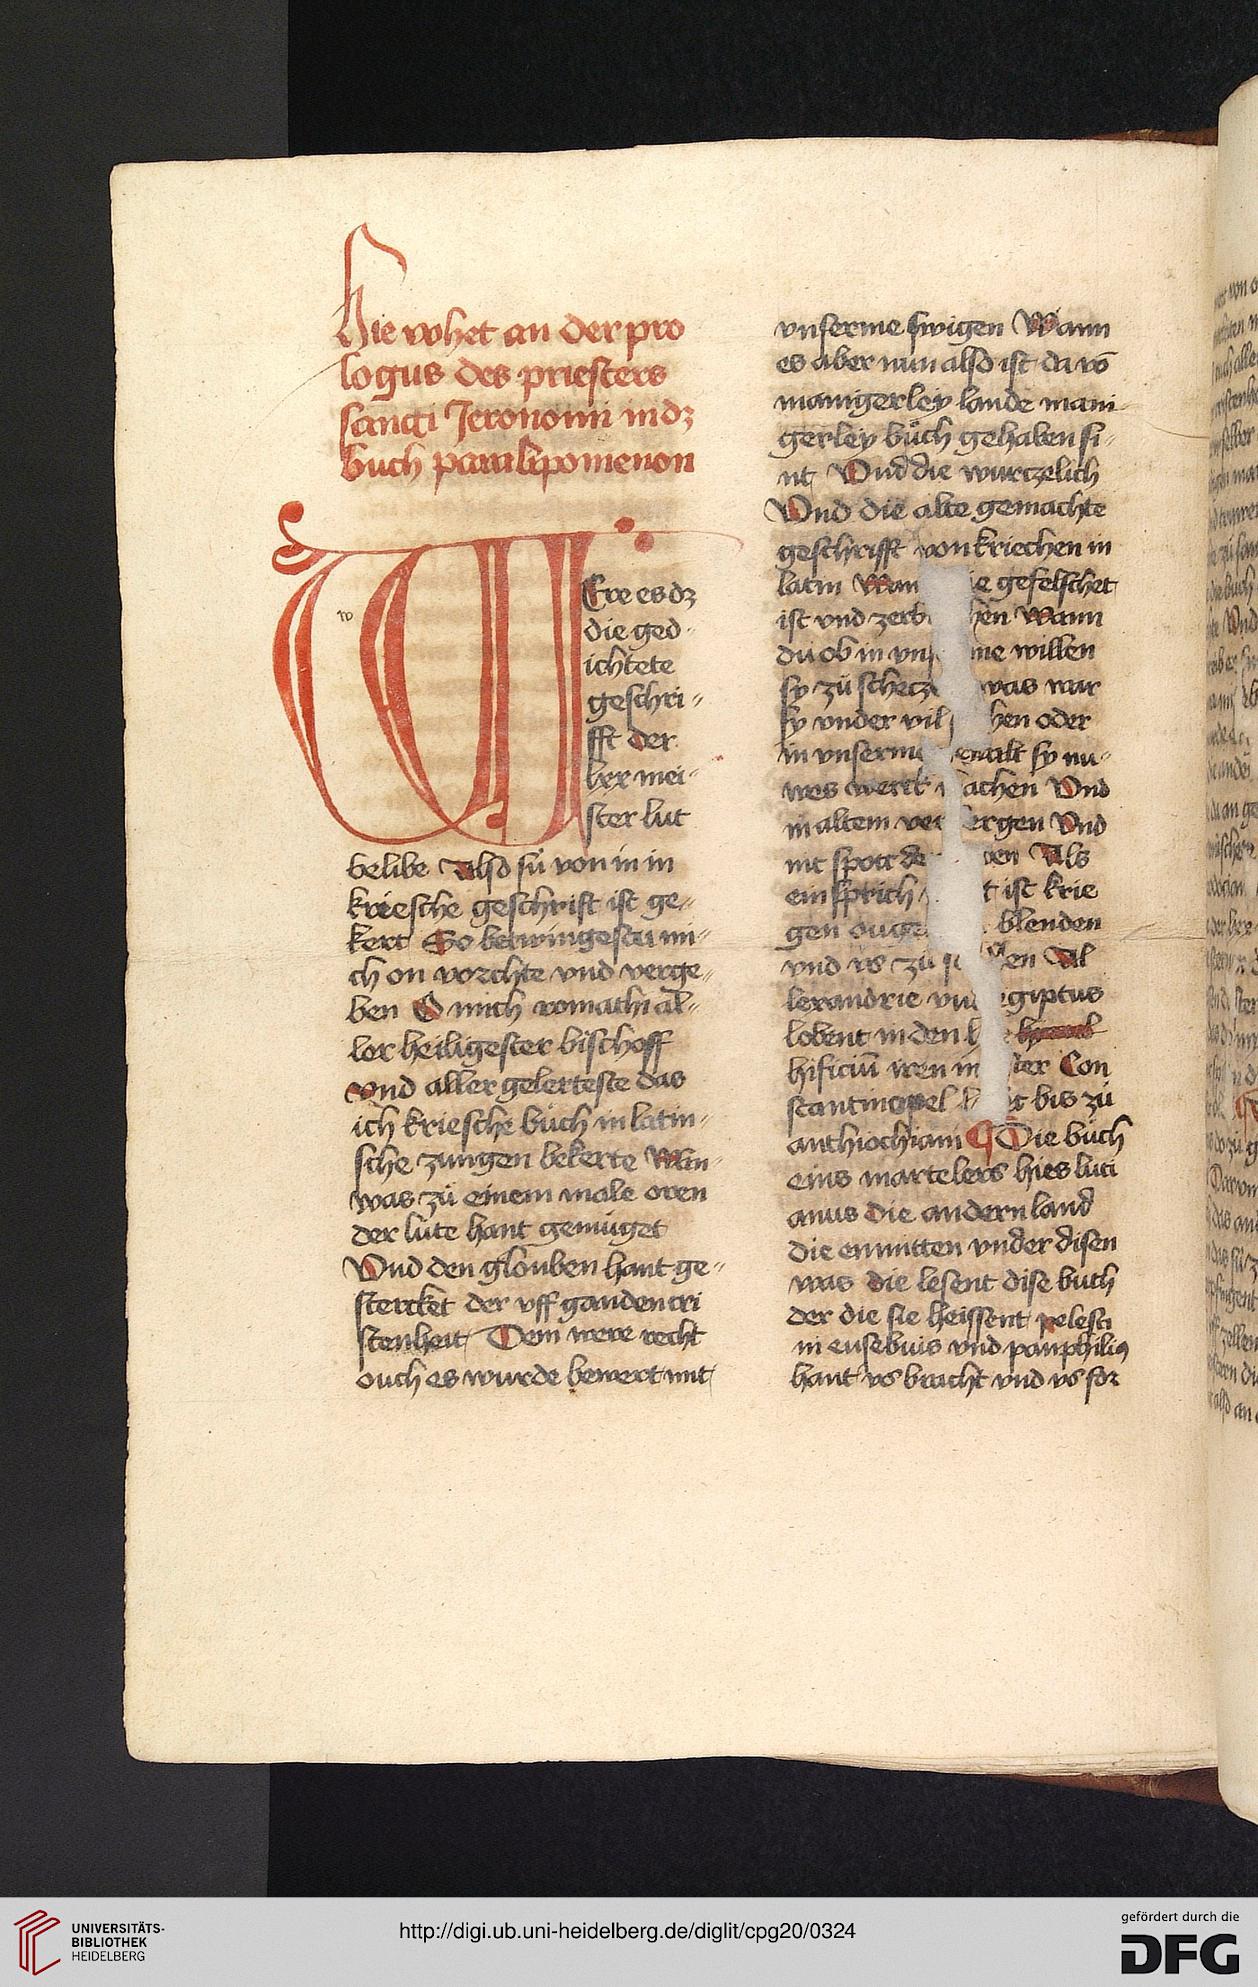 Hie vohet an der pro
logus des priesters
sancti Jeronomi in dz
buch paralipomenon
w
Ere es dz
die ged-
ichtete
geschri-
fft der
lxx mei-
ster lut
belibe Also sú von in in
kriesche geschrift ist ge-
kert So betwingestu mi-
ch on vorchte vnd verge-
ben O mich romathi al-
ler heiligester bischoff
vnd aller gelerteste das
ich kriesche bůch in latin-
sche zungen bekerte Wan
was zů einem male oren
der lúte hant genúget
Vnd den glouben hant ge-
stercket der vff ganden cri
stenheit Dem were recht
ouch es wurde bewert mit
vnserme swigen Wann
es aber nun also ist da vs
manigerley lande mani
gerley bůch gehaben si-
nt Vnd die wurczelich
Vnd die alte gemachte
geschrifft von kriechen in
latin gefelschet
ist vnd Wann
du ob in willen
sy zů was war
sy vnder oder
in vnserme sy nu-
wes werck Vnd
in altem Vnd
nit spott Als
ein ist krie
gen blenden
vnd vs zů Al
lexandrie giptus
lobent in den
hificiū iren Con
stantinopel bis zů
anthiochiam Die bůch
eins martelers hies luci
anus die andern land
die enmitten vnder disen
was die lesent dise buch
der die sie heissent pelesti
in eusebius vnd pamphilius
hant vs bracht vnd vs for
UNIVERSITÄTS-
BIBLIOTHEK
HEIDELBERG
http://digi.ub.uni-heidelberg.de/diglit/cpg20/0324
gefördert durch die
DFG